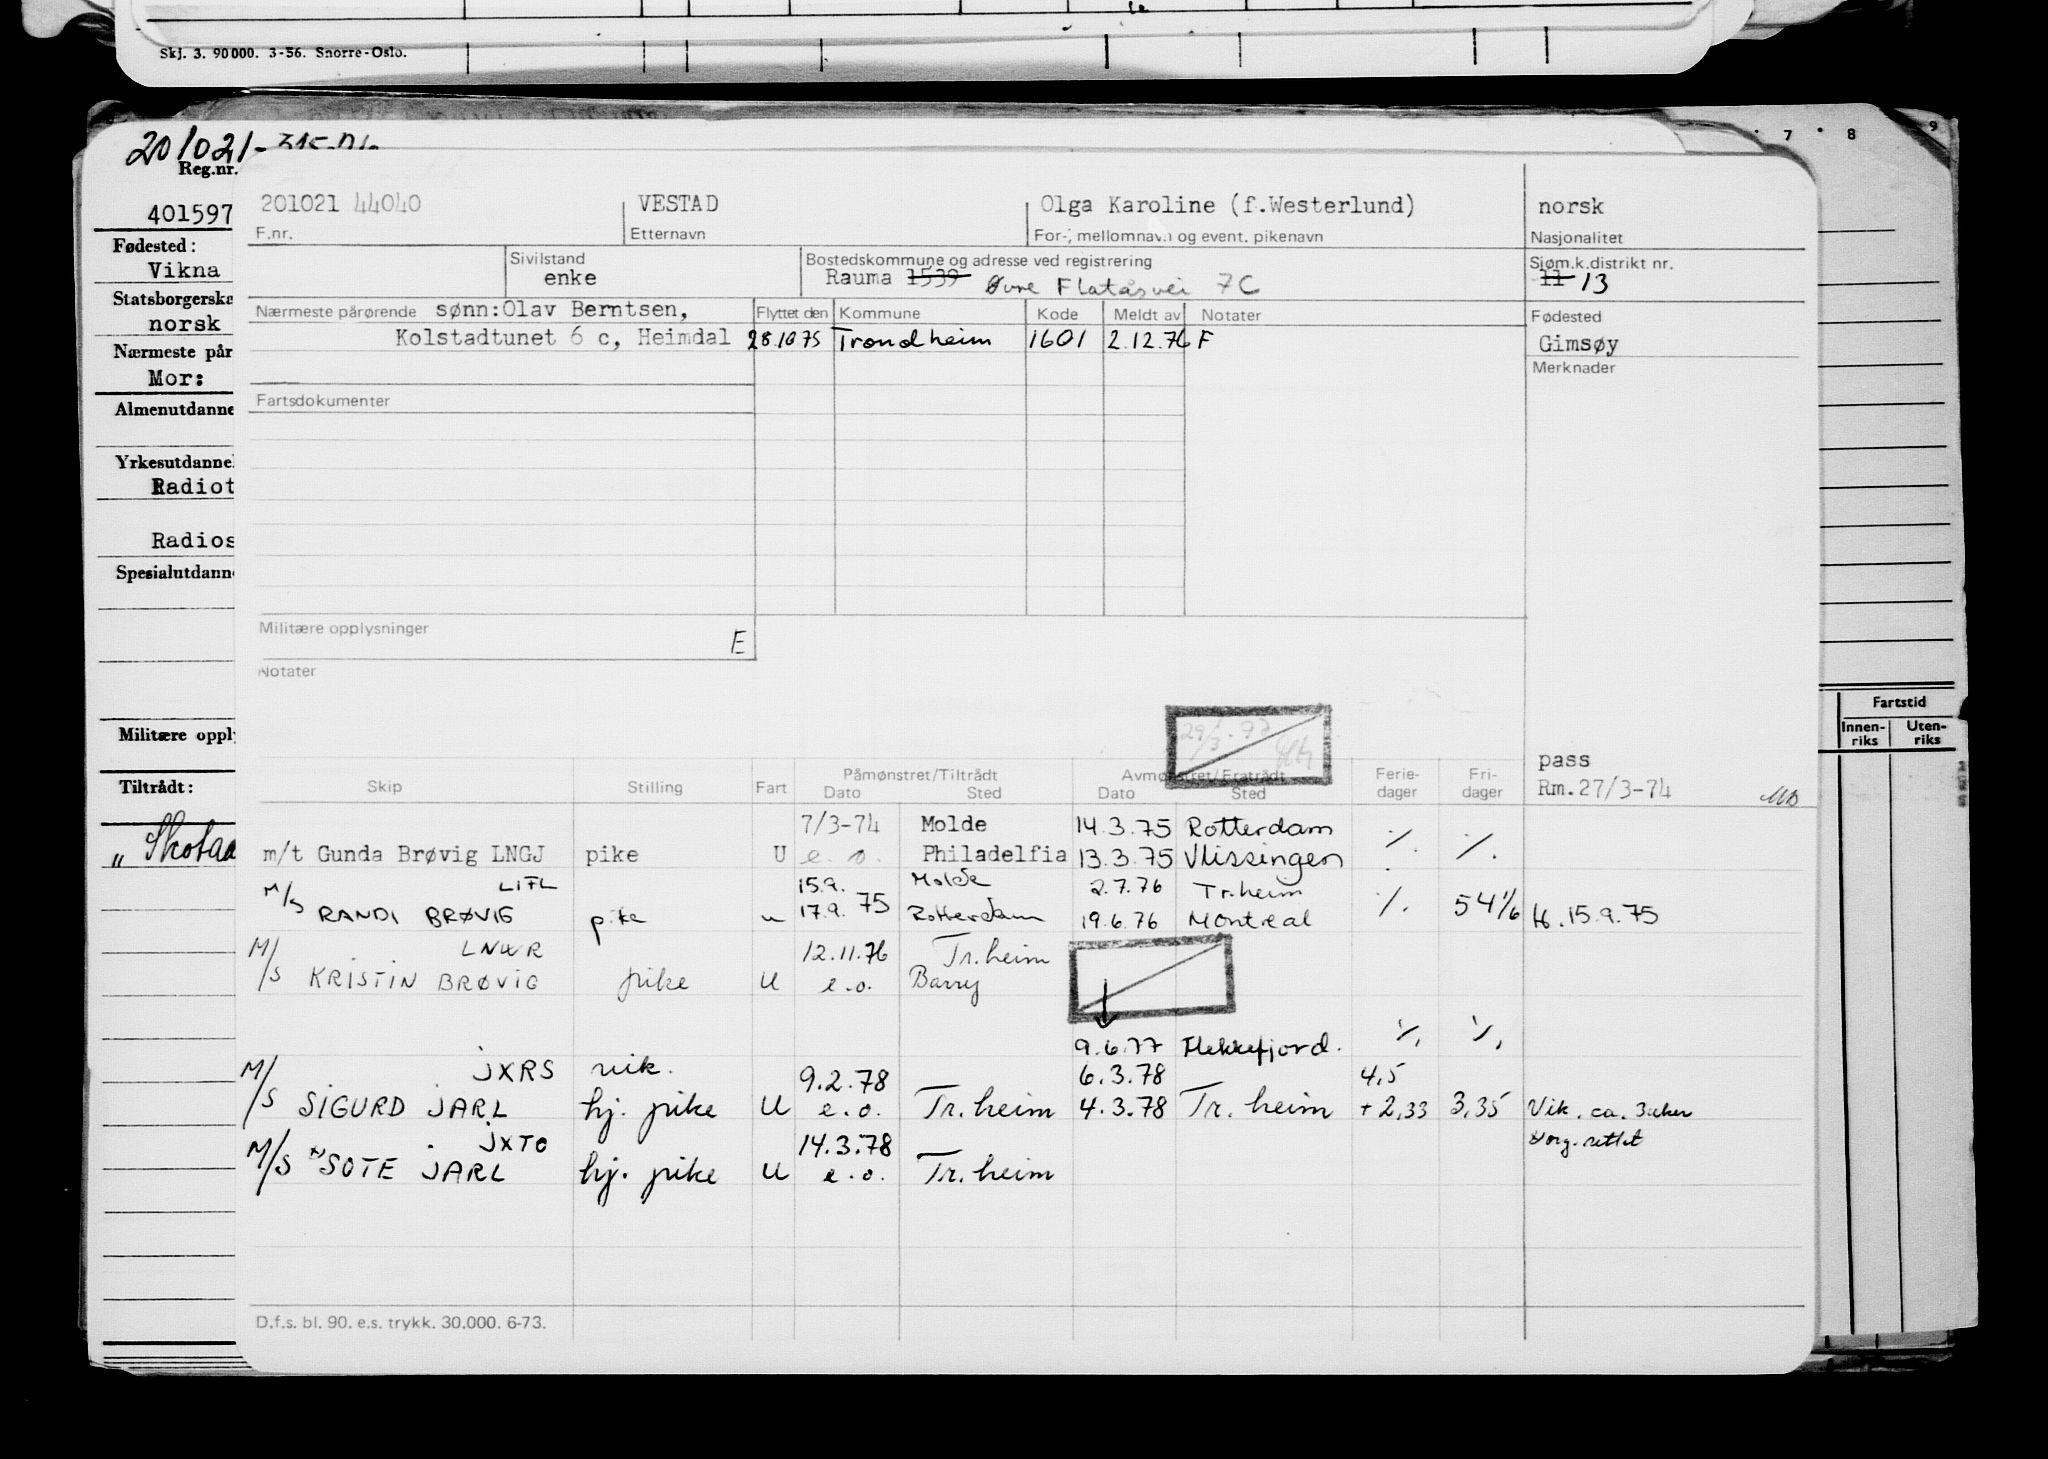 Skj. 3. 90000. 3-56. Snorre-Oslo.
7 8 9
201021-
Reg.nr.
401597
Fødested:
Vikna
Statsborgerska
norsk
Nærmeste pår
Mor:
Almenutdanne
Yrkesutdannel
Radiot
Radios
Spesialutdann
Militære oppl
Tiltrådt:
Fartstid
Innen-riks Uten-riks
201021 44040 VESTAD Olga Karoline (f.Westerlund) norsk
F.nr. Etternavn For-, mellomnavn og event. pikenavn Nasjonalitet
Sivilstand Bostedskommune og adresse ved registrering Sjøm.k.distrikt nr.
enke Rauma 1539 Øvre Flatåsvei 7C 11 13
Nærmeste pårørende sønn:Olav Berntsen, Flyttet den Kommune Kode Meldt av Notater Fødested
Kolstadtunet 6 c, Heimdal 28.10 75 Trondheim 1601 2.12.76 F Gimsøy
Merknader
Fartsdokumenter
Militære opplysninger E
Notater
29/3-97
pass
Påmønstret/Tiltrådt Avmønstret/Fratrådt
Skip Stilling Fart Dato Sted Dato Sted Ferie-dager Fri-dager Rm.27/3-74
7/3-74 Molde 14.3.75 Rotterdam
m/t Gunda Brøvig LNGJ pike U e.o. Philadelfia 13.3.75 Vlissingen ./. ./.
M/S LIFL 15.9. Molde 2.7.76 Tr.heim
RANDI BRØVIG pike u 17.9. 75 Rotterdam 19.6.76 Montreal ./. 54 1/6 H. 15.9.75
M/S LNWR 12.11.76 Tr.heim
KRISTIN BRØVIG pike U e.o. Barry
9.6.77 Flekkefjord. ./. ./.
M/S JXRS vik. 9.2.78 6.3.78 4,5
SIGURD JARL hj. pike U e.o. Tr.heim 4.3.78 Tr.heim + 2,33 3,35 Vik. ca. 3uker
M/S JXTO 14.3.78
"SOTE JARL hj. pike U e.o. Tr.heim
D.f.s. bl. 90. e.s. trykk. 30.000. 6-73.